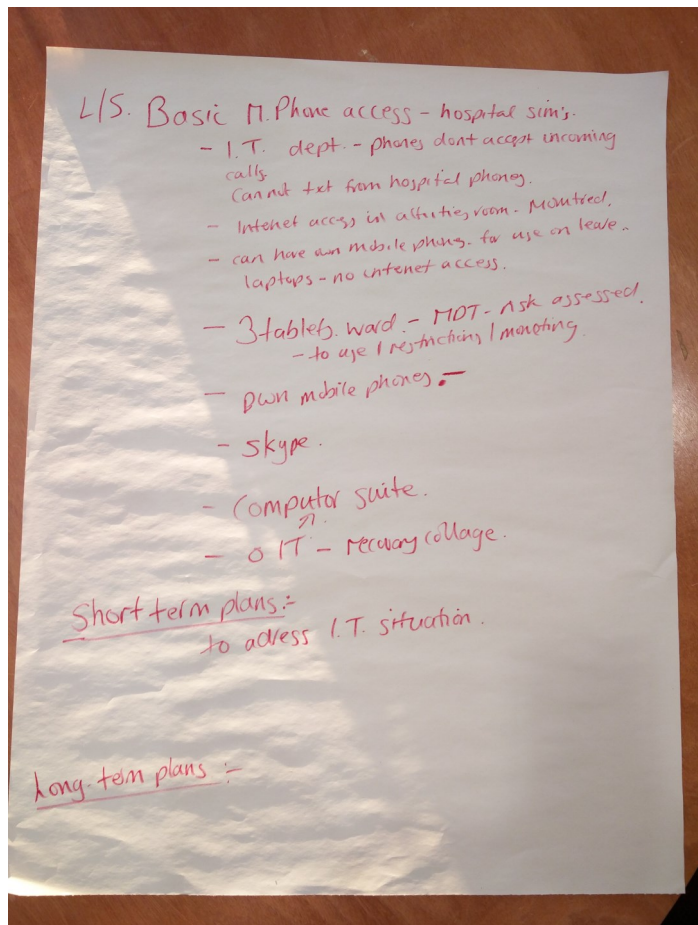 L/S. Basic M.Phone access - hospital sim's.
- I.T. dept. - phones dont accept incoming
calls
Cannot txt from hospital phones.
- Internet access in room - Monitred.
- can have own mobile phones. for use on leave.
laptops - no internet access.
- 3 tablets. ward. - MDT - risk assessed.
- to use / restrictions / moneting.
- Own mobile phones. -
- Skype.
- Computor suite.
- O IT - recovery collage.
Short term plans:-
to adress I.T. situation.
Long-term plans :-